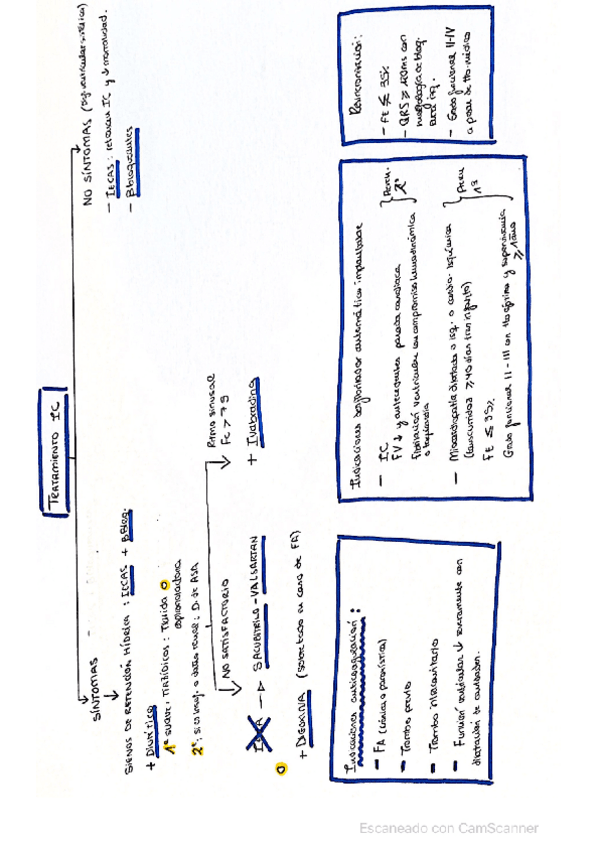 TRATAMIENTO IC
SÍNTOMAS
SIGNOS DE RETENCIÓN HÍDRICA : IECAS + Bbloq.
+ Diurético
1º suave: TIAZÍDICOS: TIACIDA o
eplerenolactona
2º: si es insuf. o daño renal: D. de ASA
NO SATISFACTORIO
IECA → SACUBITRILO-VALSARTAN
o
+ DIGOXINA (sobre todo en caso de FA)
Ritmo sinusal
FC > 75
+ Ivabradina
NO SÍNTOMAS
- IECAS: retrasan IC y ↓ mortalidad.
- Bbloqueantes
Indicaciones anticoagulación:
- FA (crónica o paroxística)
- Trombo previo
- Trombo intracavitario
- Función ventricular ↓ severamente con
dilatación de cavidades.
Indicaciones desfibrilador automático implantable
- IC
FV ↓ y antecedentes parada cardíaca
Fibrilación ventricular con compromiso hemodinámico
o taquicardia
Prev.
2ª
- Miocardiopatía dilatada o isq. o cardio. isquémica
(transcurridos ≥40 días tran infarto)
FE ≤ 35%
Grado funcional II - III con tto óptimo y supervivencia
≥ 1 año
Prev
1ª
Resincronización:
- FE ≤ 35%
- QRS ≥ 120ms con
morfología de bloq.
rama izq.
- Grado funcional II-IV
a pesar de tto médico
Escaneado con CamScanner